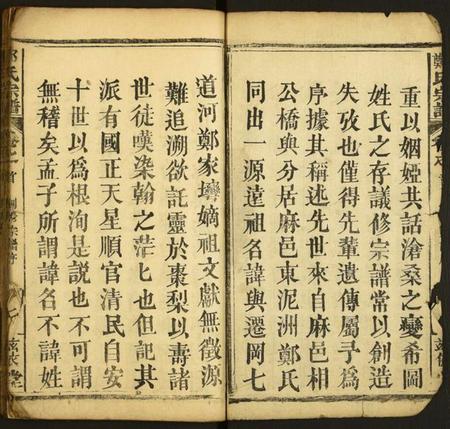 重以姻婭共話滄桑之變希圖
姓氏之存議修宗譜常以創造
失攷也僅得先輩遺傳屬予爲
序據其稱述先世來自麻邑相
公橋與分居麻邑東泥洲鄭氏
同出一源達祖名諱與遷岡七
道河鄭家塆嫡祖文獻無徵源
難追溯欲託靈於棗梨以壽諸
世徒嘆染翰之茫匕也但記其
派有國正天星順官清民自安
十世以爲根洵是説也不可謂
無稽矣孟子所謂諱名不諱姓
鄭氏宗譜
氏宗譜